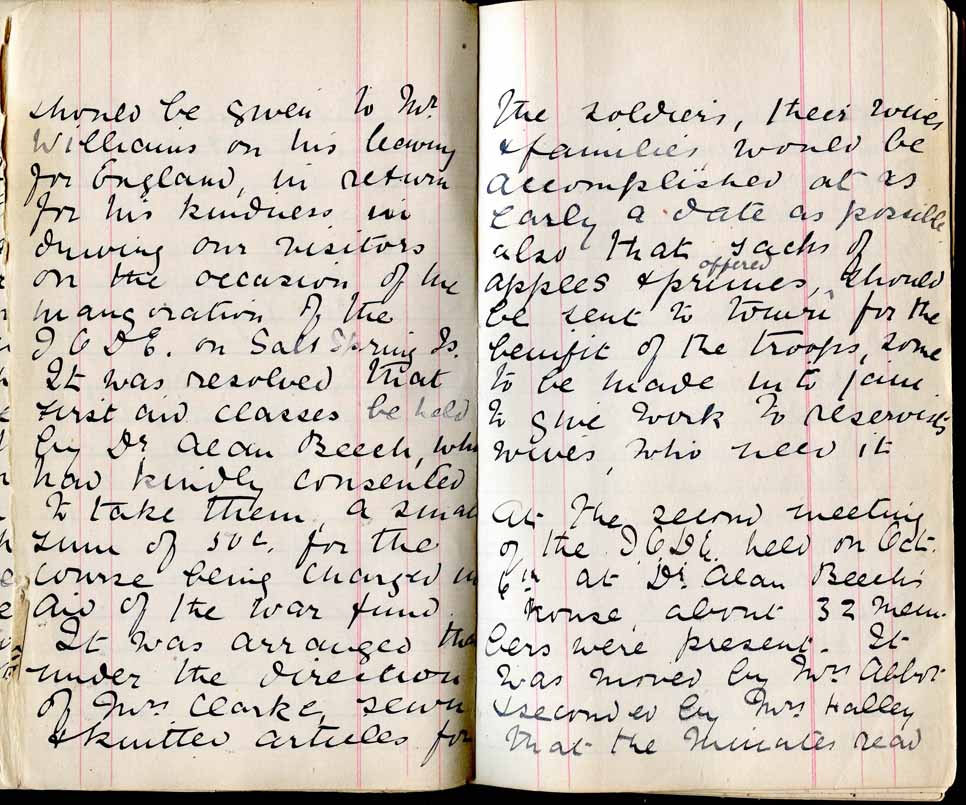 should be given to Mr.
Williams on his leaving
for England, in return
for his kindness in
driving our visitors
on the occasion of the
inaugoration of the
I O D E. on Salt Spring Is.
It was resolved that
first aid classes be held
by Dr. Alan Beech, who
had kindly consented
to take them, a small
sum of 50c. for the
course being charged in
aid of the war fund.
It was arranged that
under the direction
of Mrs. Clarke, sewn
& knitted articles for
the soldiers, their wives
& families, would be
accomplished at as
early a date as possible
also that sacks of
offered
apples & prunes, should
be sent to town for the
benifit of the troops, some
to be made into jam
to give work to reservists
wives, who need it
At the second meeting
of the I.O.D.E. held on Oct.
6th at Dr. Alan Beech's
house, about 32 mem-
bers were present. It
was moved by Mrs. Abbot
& seconded by Mrs. Halley
that the minutes read